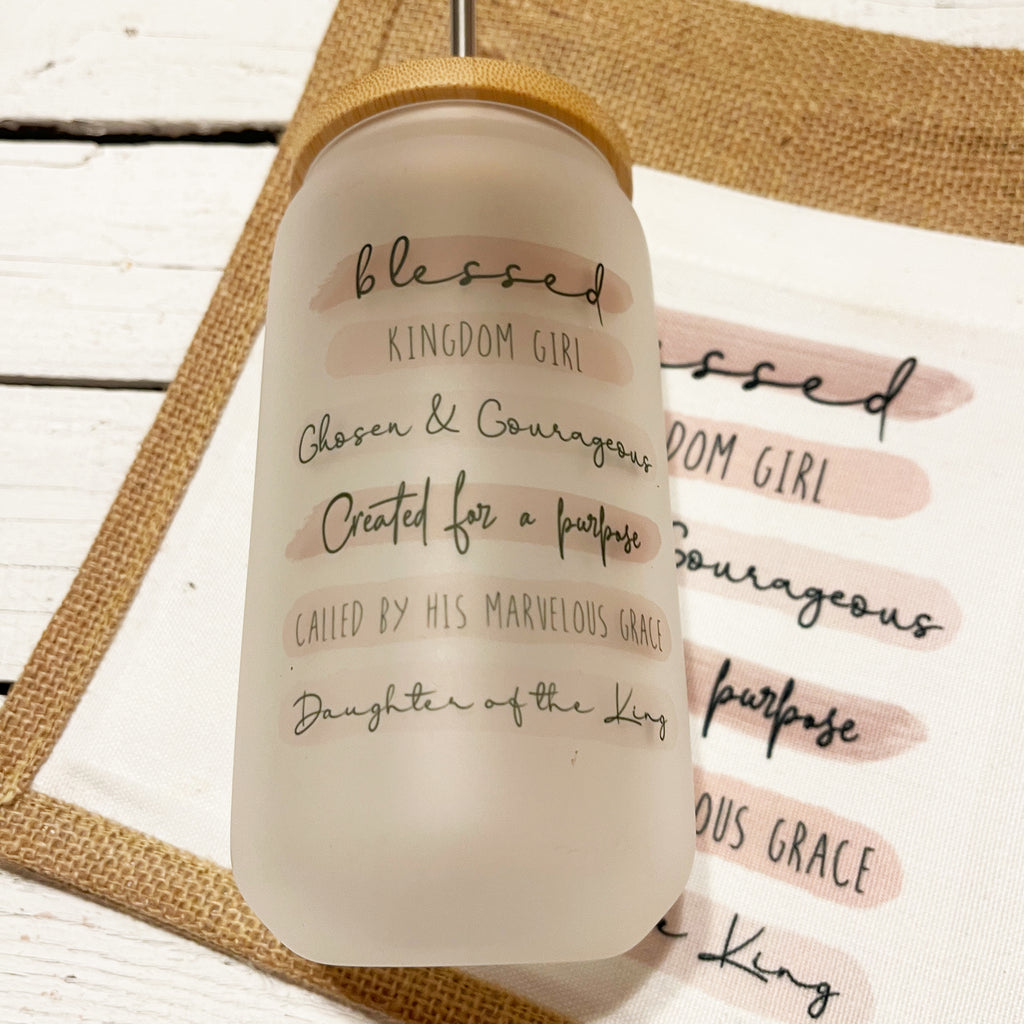 blessed
KINGDOM GIRL
Chosen & Courageous
Created for a purpose
CALLED BY HIS MARVELOUS GRACE
Daughter of the King
ssed
DOM GIRL
Courageous
purpose
OUS GRACE
e King